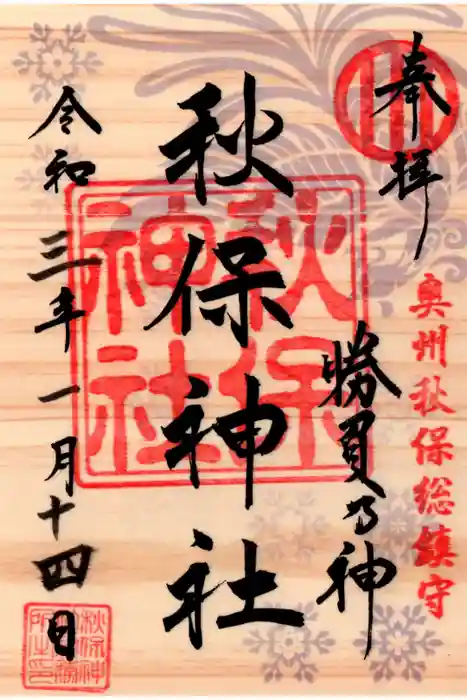 奉拝
奥州秋保総鎮守
勝負の神
秋保神社
秋保神社
令和三年一月十四日